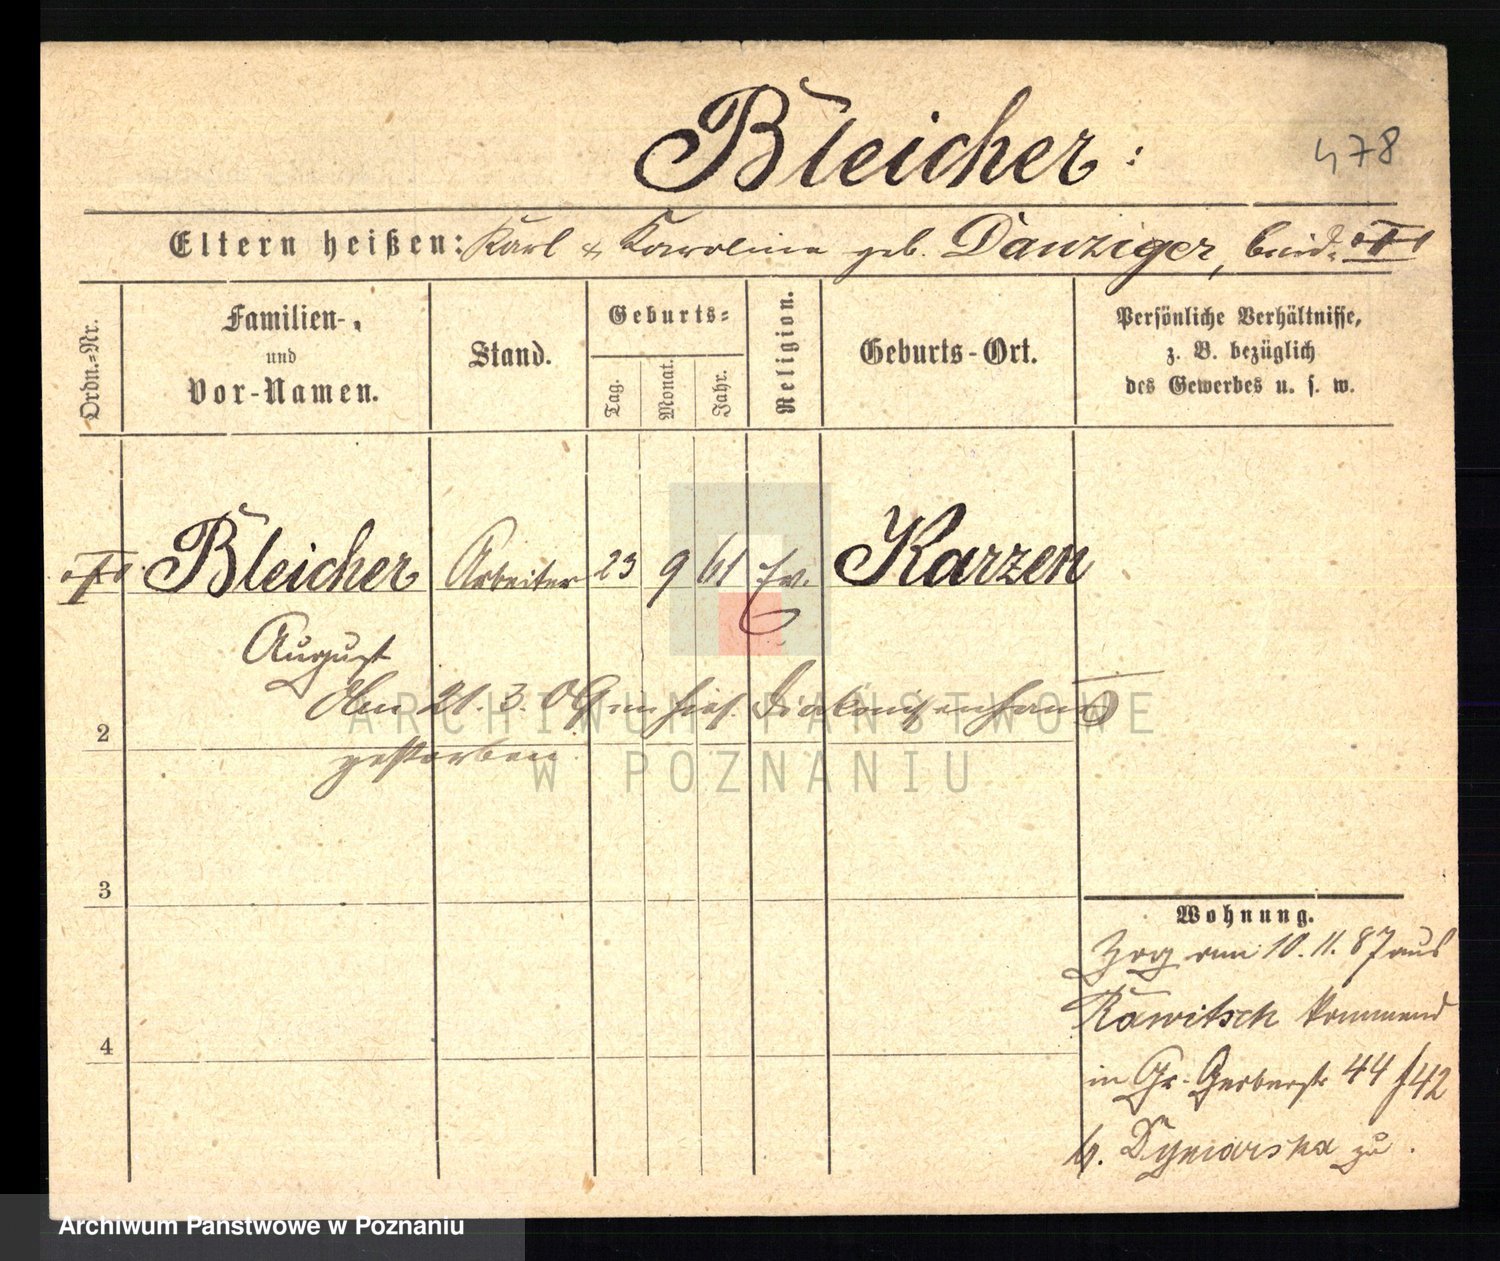 Bleicher:
478
Eltern heißen: Karl & Karolina geb. Danziger, beide
Ordn.=Nr.
Familien-
und
Vor-Namen.
Stand.
Geburts=
Tag.
Monat.
Jahr.
Religion.
Geburts-Ort.
Persönliche Verhältnisse,
z. B. bezüglich
des Gewerbes u. s. w.
Bleicher Arbeiter 23 9 61 Ev. Karzen
August
Am 21.3.09 im hies. Diakonissenhaus
gestorben
2
3
4
Wohnung.
Zog am 10.11.87 aus
Rawitsch kommend
in Gr. Gerberstr 44/42
b. Dymarska zu.
ARCHIWUM PAŃSTWOWE
W POZNANIU
Archiwum Państwowe w Poznaniu